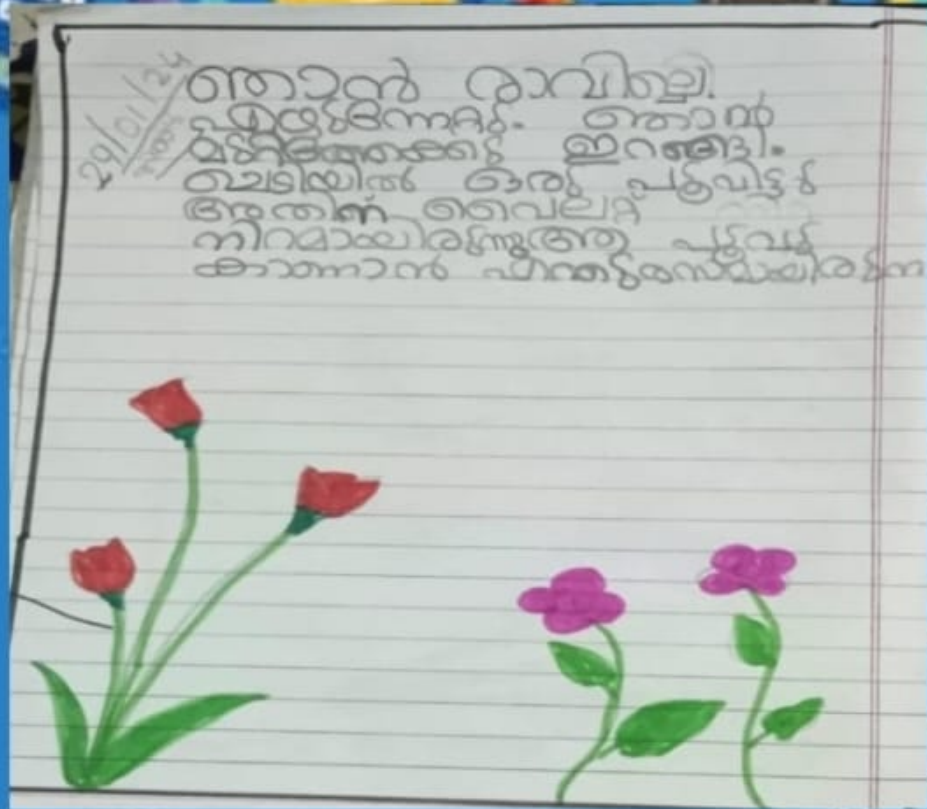 29/01/24
ഞാൻ രാവിലെ
എഴുന്നേറ്റു. ഞാൻ
മുറ്റത്തേക്കു ഇറങ്ങി.
ചെടിയിൽ ഒരു പൂവിട്ടു
അതിന് വൈലറ്റ്
നിറമായിരുന്നു ആ പൂവു
കാണാൻ എന്തുരസമായിരുന്ന